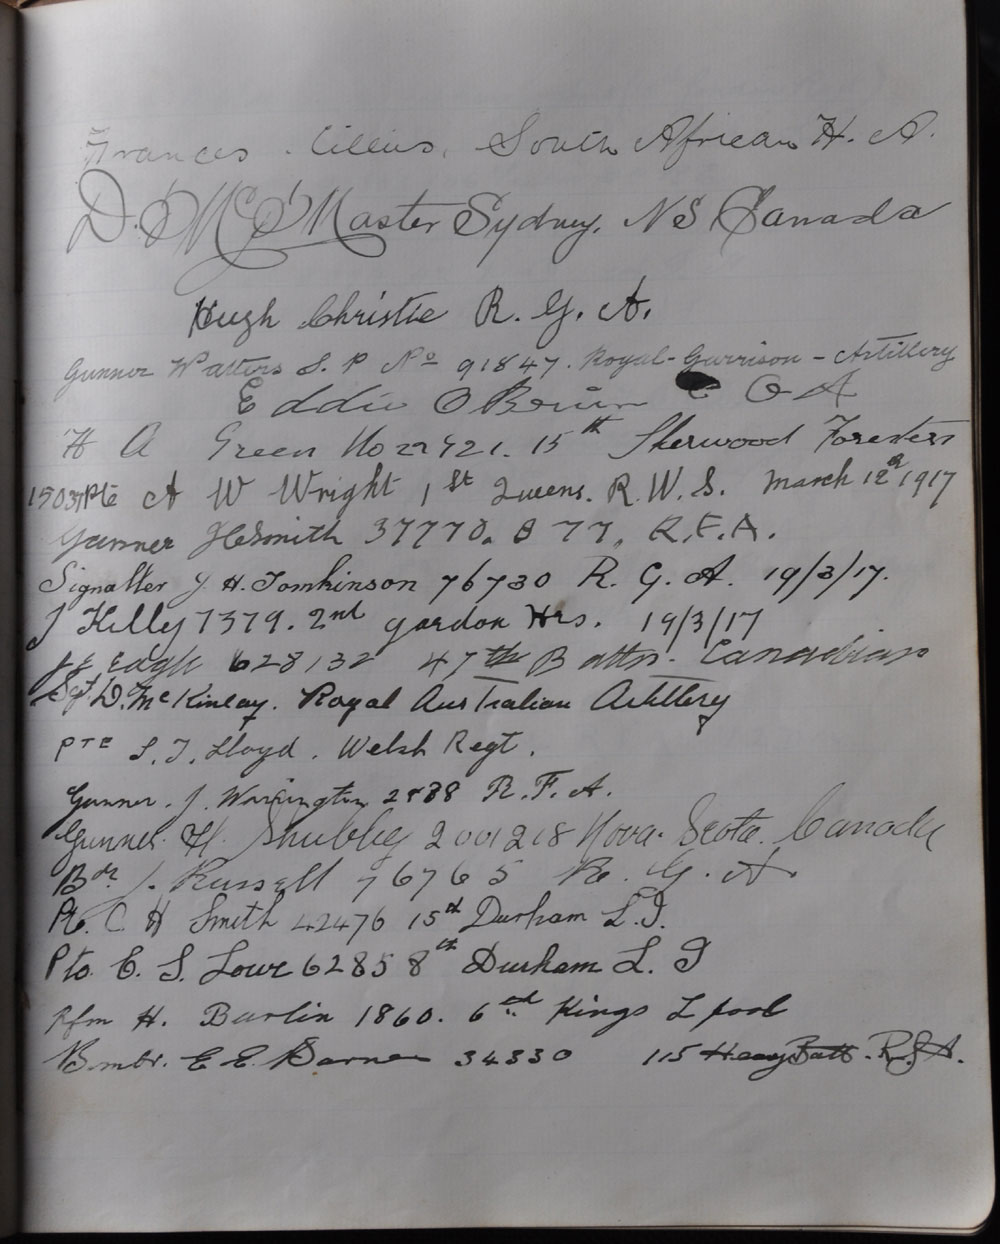 Frances Cillius, South African H. A.
D. McMaster Sydney, NS Canada
Hugh Christie R. G. A.
Gunner Watters S. P No 91847. Royal-Garrison-Artillery
Eddie O'Brien C G A
H A Green No 27921. 15th Sherwood Foresters
Pte A W Wright 1st Queens. R. W. S. March 12th 1917
Gunner H Smith 37770. B 77. R.F.A.
Signaller J. H. Tomkinson 76730 R. G. A. 19/3/17.
J Kelly 7379. 2nd Gordon Hrs. 19/3/17
Eagle 628132 47th Battn. Canadian
Sgt. D. McKinlay. Royal Australian Artillery
PTE S. J. Lloyd. Welsh Regt.
Gunner. J. Warrington R. F. A.
Gunner H. 2001218 Nova. Scota. Canada
Bdr J. Russell 76765 R. G. A
Pte. C H Smith 42476 15th Durham L.I.
Pte. E. S. Lowe 6285 8th Durham L. I
Rfm H. Burlin 1860. 6th Kings Lpool
Bmbr. E E Barnes 34330 115 Heavy Batt. R.G.A.